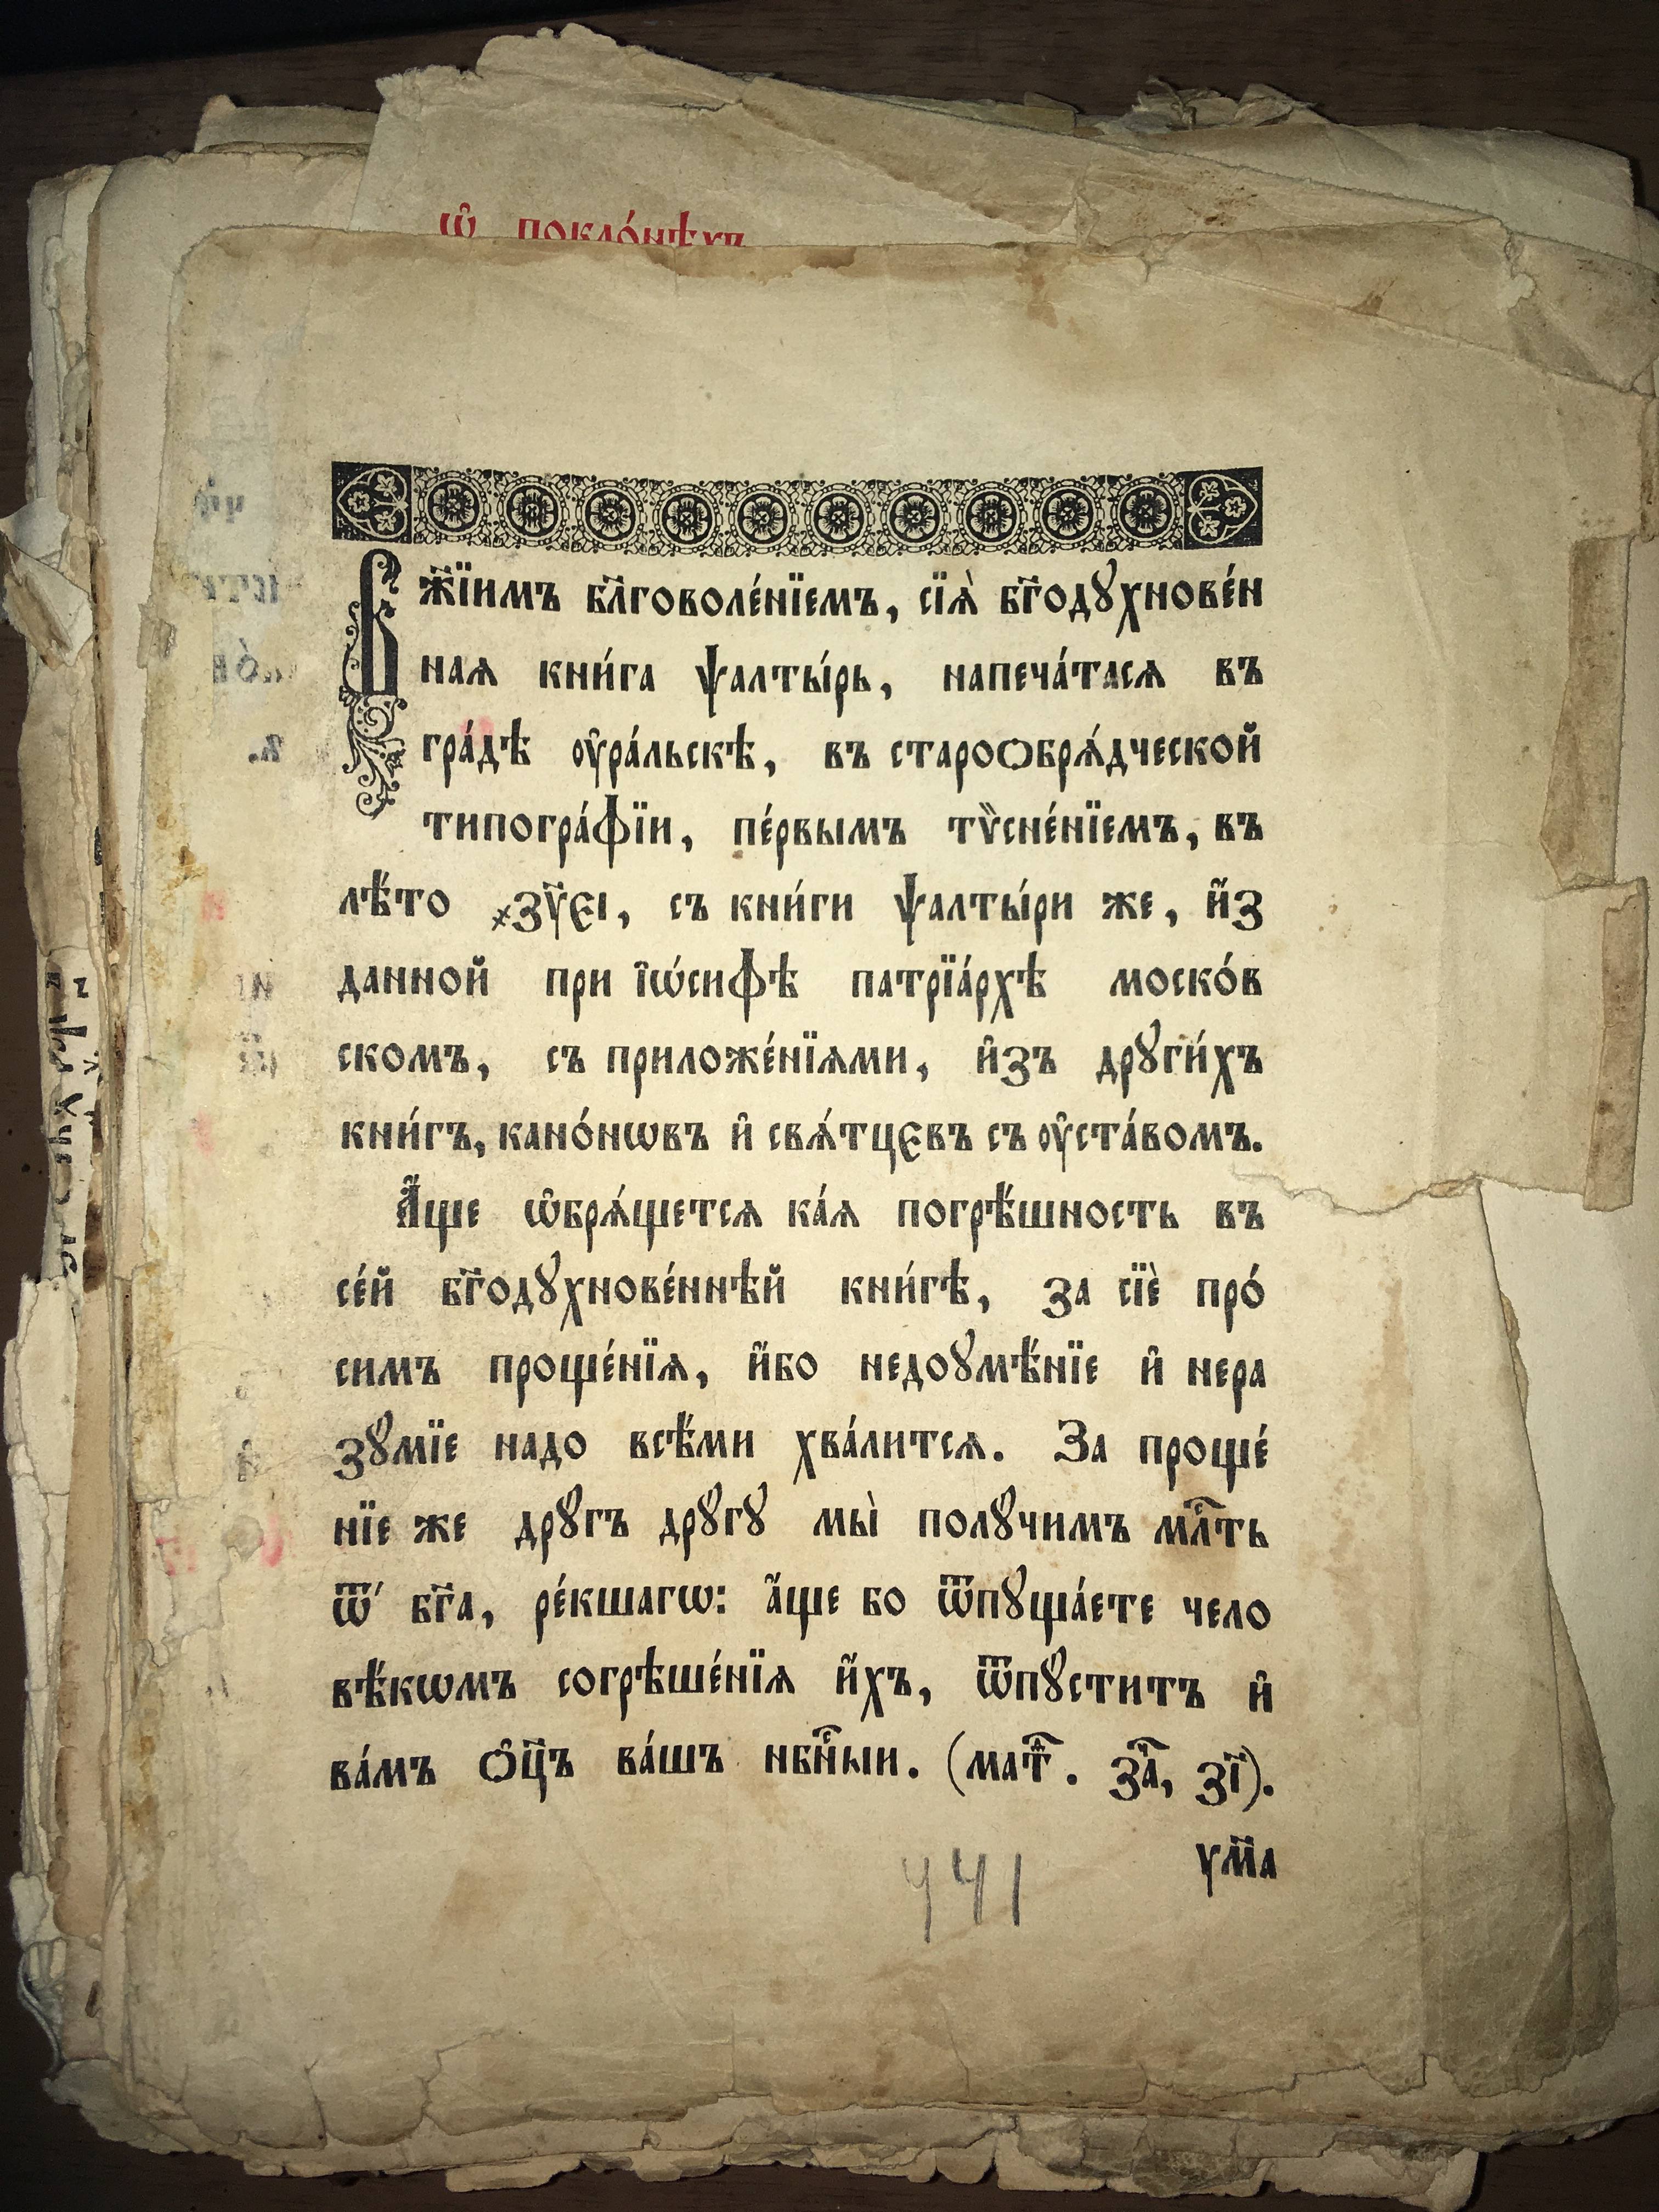 Ѽ поклóнѣхъ
Бж҃їимъ бл҃говоле́нїемъ, сїѧ̀ бг҃одꙋхнове́н
наѧ кни́га ѱалты́рь, напеча́тасѧ въ
гра́дѣ ᲂу҆ра́льскѣ, въ староѻбрѧ́дческой
типогра́фїи, пе́рвымъ тѷсне́нїемъ, въ
лѣ́то ҂зу҃еі, съ кни́ги ѱалты́ри же, и҆́з
данной при і҆ѡ́сифѣ патрїа́рхѣ моско́в
скомъ, съ приложе́нїѧми, и҆зъ дрꙋги́хъ
кни́гъ, кано́нѡвъ и҆ свѧ́тцєвъ съ ᲂу҆ста́вомъ.
А҆́ще ѡ҆брѧ́щетсѧ ка́ѧ погрѣ́шность въ
се́й бг҃одꙋхнове́ннѣй кни́гѣ, за сїѐ про́
симъ проще́нїѧ, и҆́бо недоꙋмѣ́нїе и҆ нера
зꙋ́мїе надо всѣ́ми хва́литсѧ. За проще́
нїе же дрꙋ́гъ дрꙋ́гꙋ мы̀ полꙋ́чимъ мл҇ть
ѿ бг҃а, ре́кшагѡ: а҆́ще бо ѿпꙋща́ете чело
вѣ́кѡмъ согрѣше́нїѧ и҆́хъ, ѿпꙋ́ститъ и҆
ва́мъ ѻ҆ц҃ъ ва́шъ нбⷭ҇ныи. (матⷴ҇. заⷱ҇, зі҃).
ум҃а
441